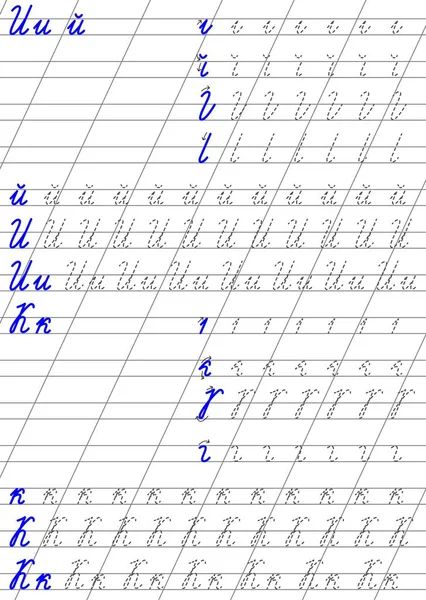 Ии й
й й й й й й й й й й й й
И И И И И И И И И И И И
Ии Ии Ии Ии Ии Ии Ии Ии
Кк
к к к к к к к к к к к к
К К К К К К К К К К К
Кк Кк Кк Кк Кк Кк Кк Кк